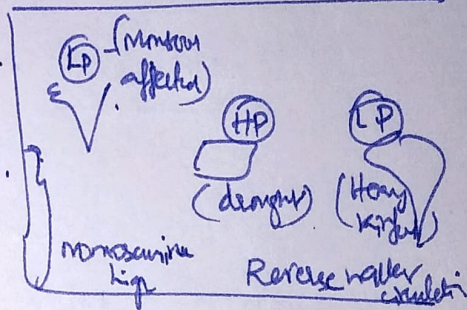 LP (Monsoon
affected)
HP
LP
(drought)
(Heavy
rainfall)
Mascarine
high
Reverse walker
circulation